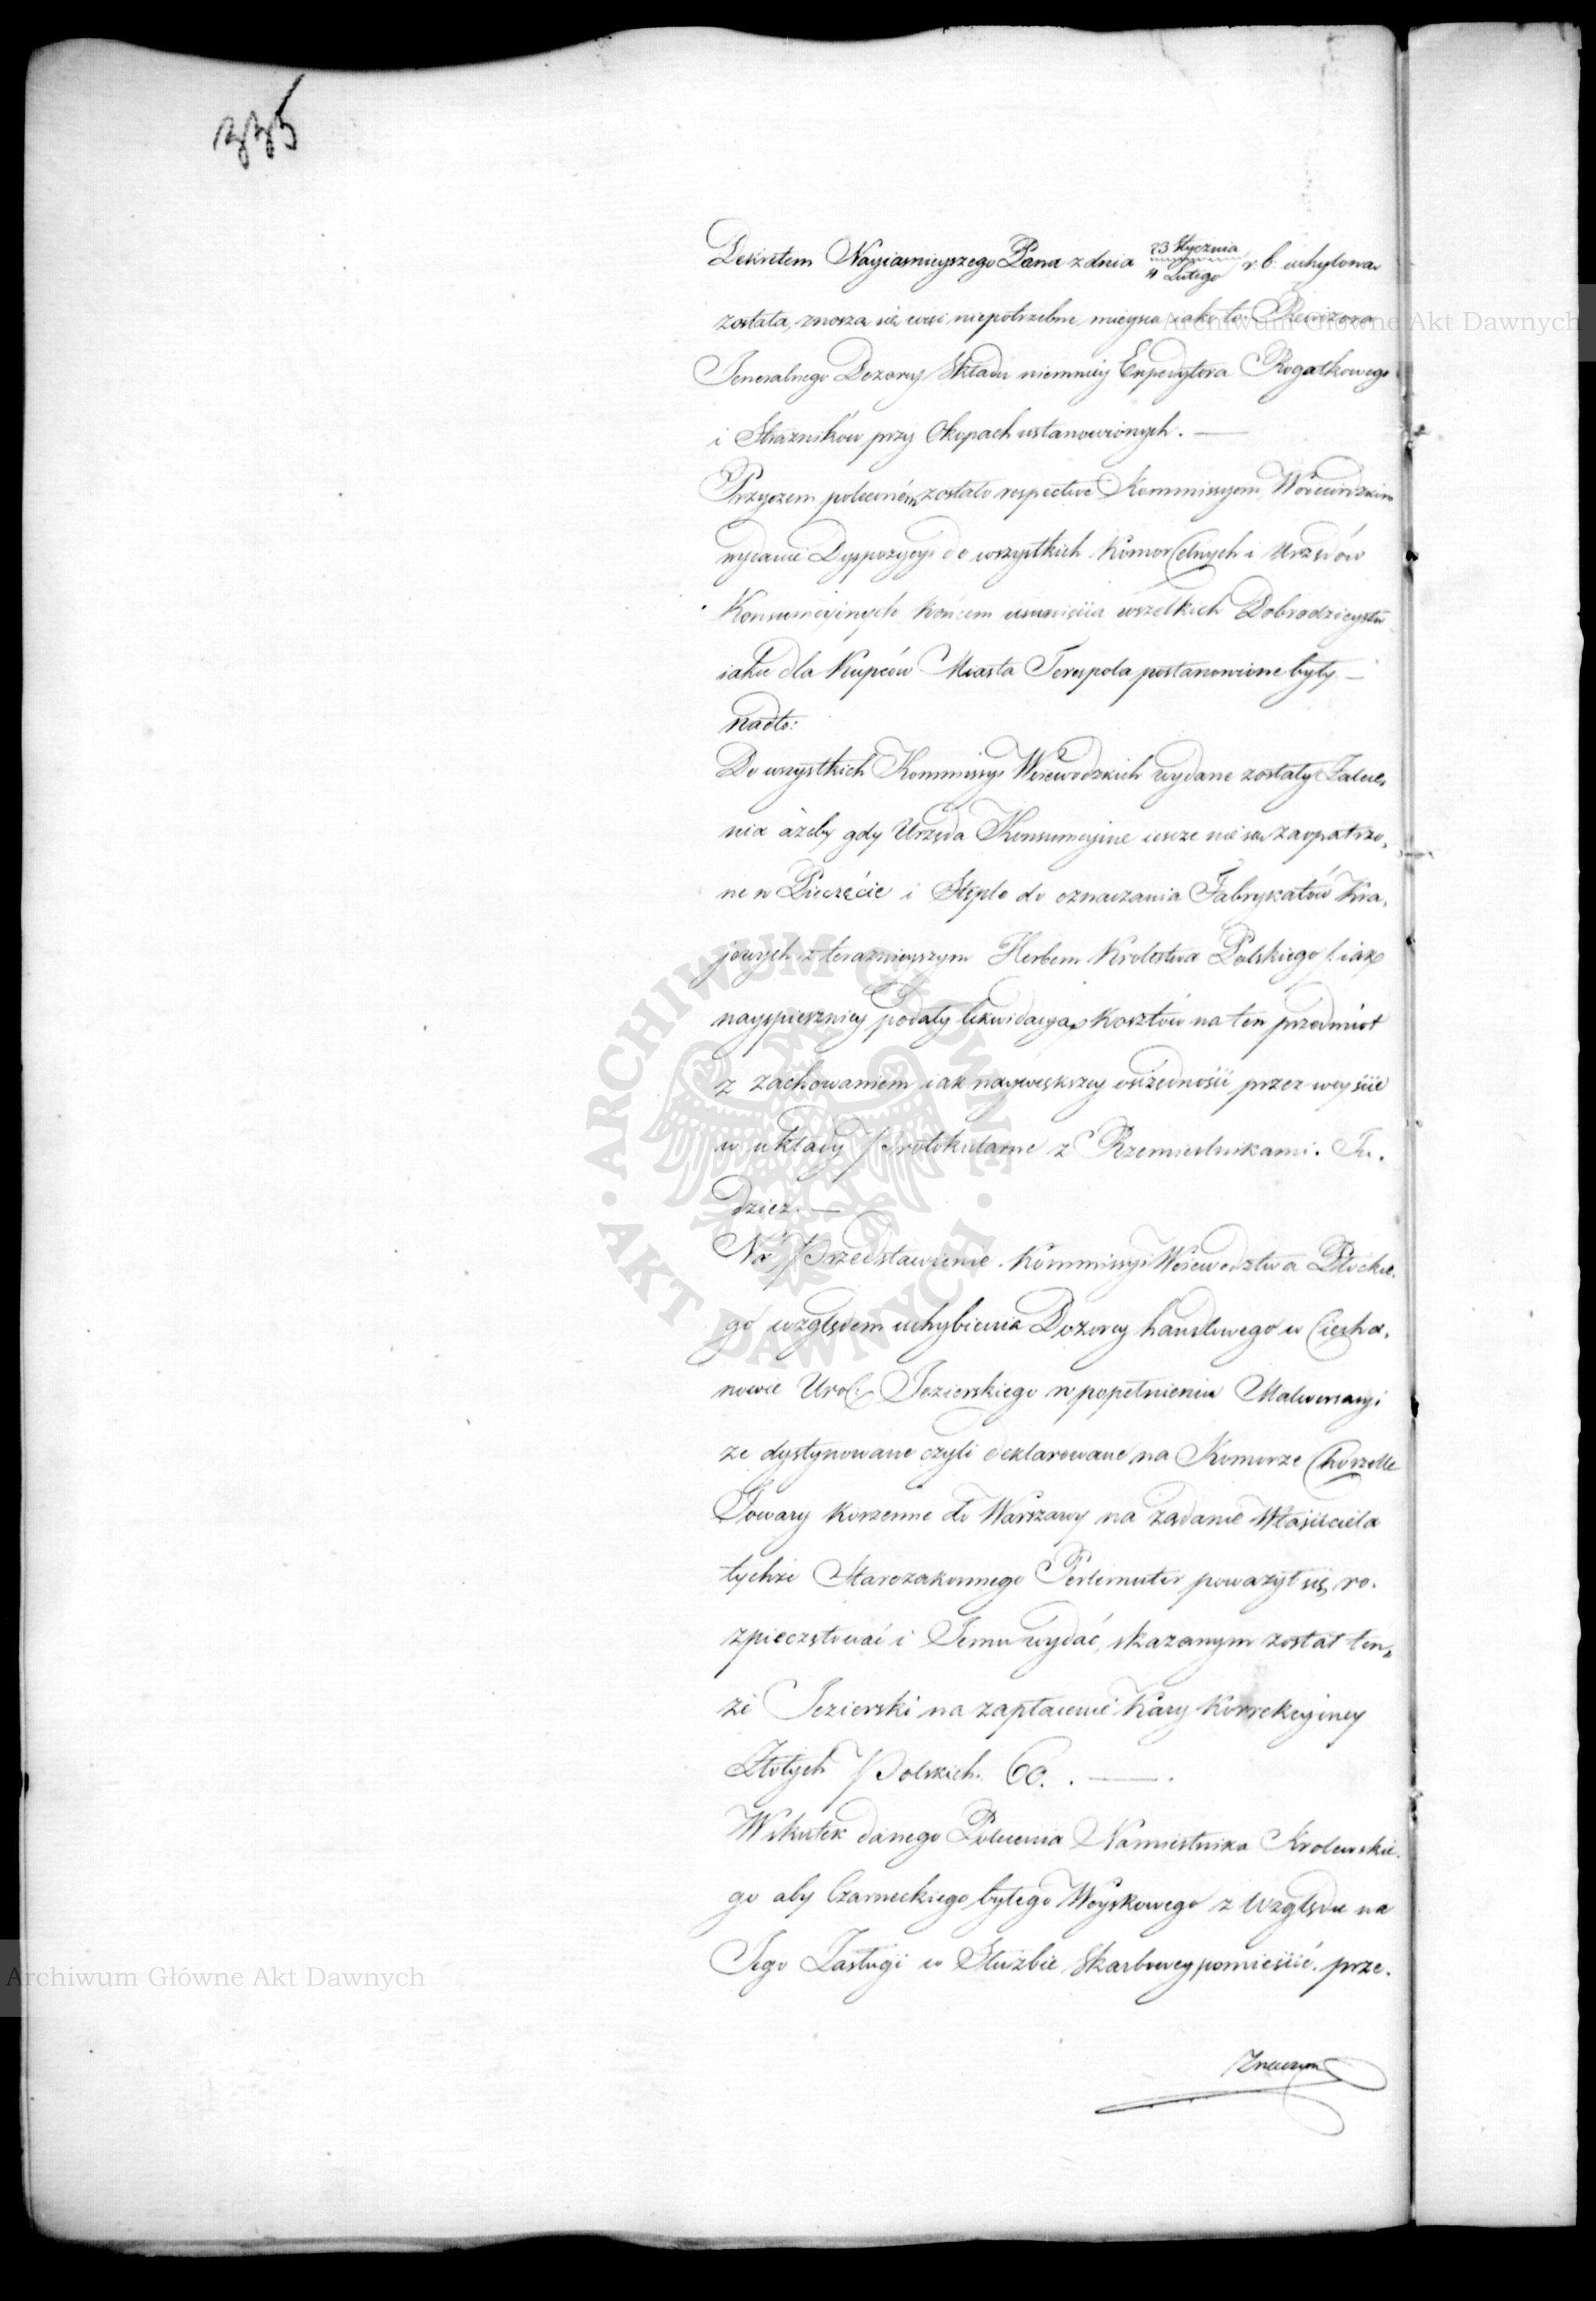 335
Dekretem Nayiasnieyszego Pana z dnia 23 Stycznia / 4 Lutego r. b. uchylona
została, znoszą się wsi niepotrzebne mieysca iako to: Rewizora
Jeneralnego Dozorcy Składu niemniéy Expedytora Rogatkowego
i Strażników przy Okopach ustanowionych. —
Przyczem poleconém zostało respective Kommissyom Woiewódzkim
wydanie Dyspozycyi do wszystkich Komor Celnych i Urzędów
Konsumcyjnych końcem usunięcia wszelkich Dobrodzieystw
iakie dla Kupców Miasta Terespola postanowione były —
nadto:
Do wszystkich Kommissyi Woiewodzkich wydane zostały Zalece,
nia ażeby gdy Urzęda Konsumcyjne iescze nie są zaopatrzo,
ne w Pieczęcie i Stęple do oznaczania Fabrykatów Kra,
jowych z teraznieyszym Herbem Krolestwa Polskiego iak
nayspieszniey podały likwidacyą kosztów na ten przedmiot
z zachowaniem iak naywiększey oszczędności przez weyście
w układy Protokularne z Rzemieslnikami. Tu.
dzież. —
Na Przedstawienie Kommissyi Woiewodztwa Płockie.
go względem uchybienia Dozorcy handlowego w Ciecha,
nowie Urol: Jezierskiego w popełnieniu Malwersacyi
że dystynowane czyli deklarowane na Komorze Chorzelle
Towary korzenne do Warszawy na żądanie Właściciela
tychże Starozakonnego Perlemuter poważył się ro.
zpieczętować i Jemu wydać, skazanym został ten,
że Jezierski na zapłacenie Kary Korrekcyiney
Złotych Polskich. 60. . —
Wskutek danego Polecenia Namiestnika Krolewskie.
go aby Czarneckiego byłego Woyskowego z względu na
Jego Zasługi w Służbie Skarbowey pomieścić. prze.
Znaczym
Archiwum Główne Akt Dawnych
Archiwum Główne Akt Dawnych
ARCHIWUM GŁÓWNE · AKT DAWNYCH ·